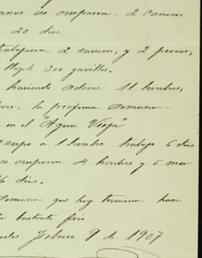 ocuparon. 2 carros
20 dias
trabajaron 2 carros, y 2 peones,
300 gavillas.
haciendo adove 11 hombres,
la proxima semana
en el "Agua Vieja"
campo a 1 hombre trabajo 6 dias
ocuparon 4 hombres y 6
6 dias.
semana que hoy termina han
bastante frio
Febrero 9 de 1907